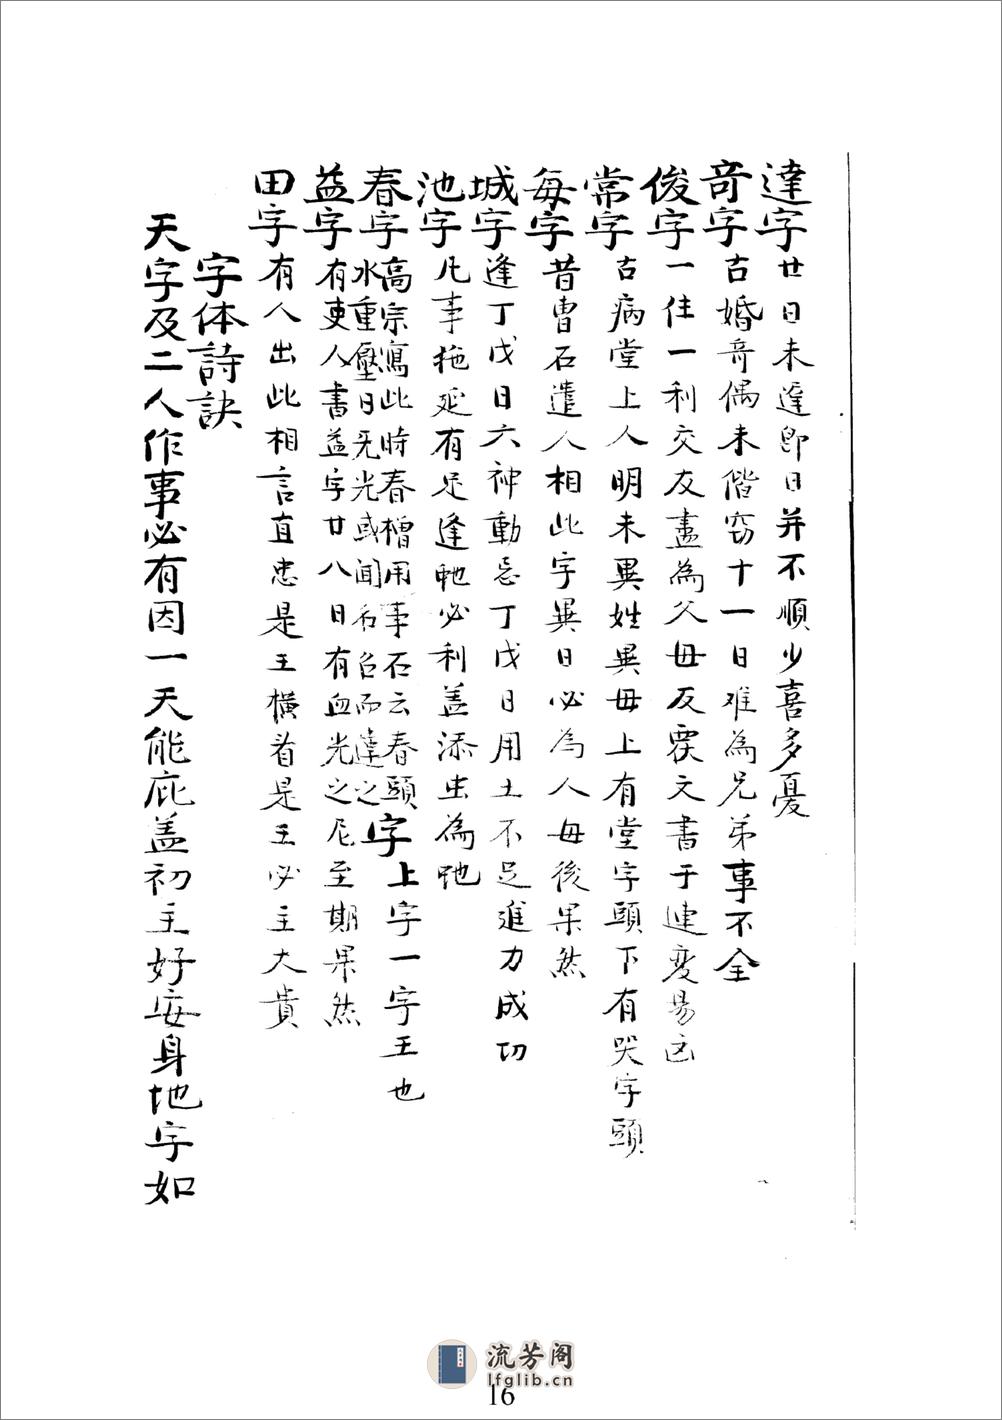 達字廿日未達即日并不順少喜多憂
奇字古婚奇偶未偕窃十一日难為兄弟事不全
俊字一住一利交友盡為父母反戾文書于連变易凶
常字古病堂上人明未異姓異母上有堂字頭下有哭字頭
每字昔曹石遣人相此字異日必為人母後果然
城字逢丁戊日六神動忌丁戊日用土不足進力成功
池字凡事拖延有足逢虵必利盖添虫為虵
春字高宗寫此時春檜用事石云春頭字上字一字王也
水重壓日无光或聞名召而達之
益字有吏人書益字廿八日有血光之厄至期果然
田字有人出此相言直忠是王橫看是王必主大貴
字体詩訣
天字及二人作事必有因一天能庇盖初主好安身地字如
流芳阁
lfglib.cn
16